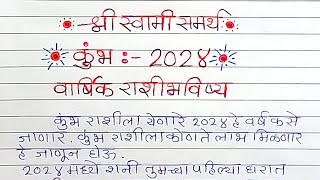 -श्री स्वामी समर्थ
कुंभ :- २०२४
वार्षिक राशीभविष्य
कुंभ राशीला येणारे २०२४ हे वर्ष कसे
जाणार. कुंभ राशीला कोणते लाभ मिळणार
हे जाणून घेऊ.
२०२४ मध्ये शनी तुमच्या पहिल्या घरात